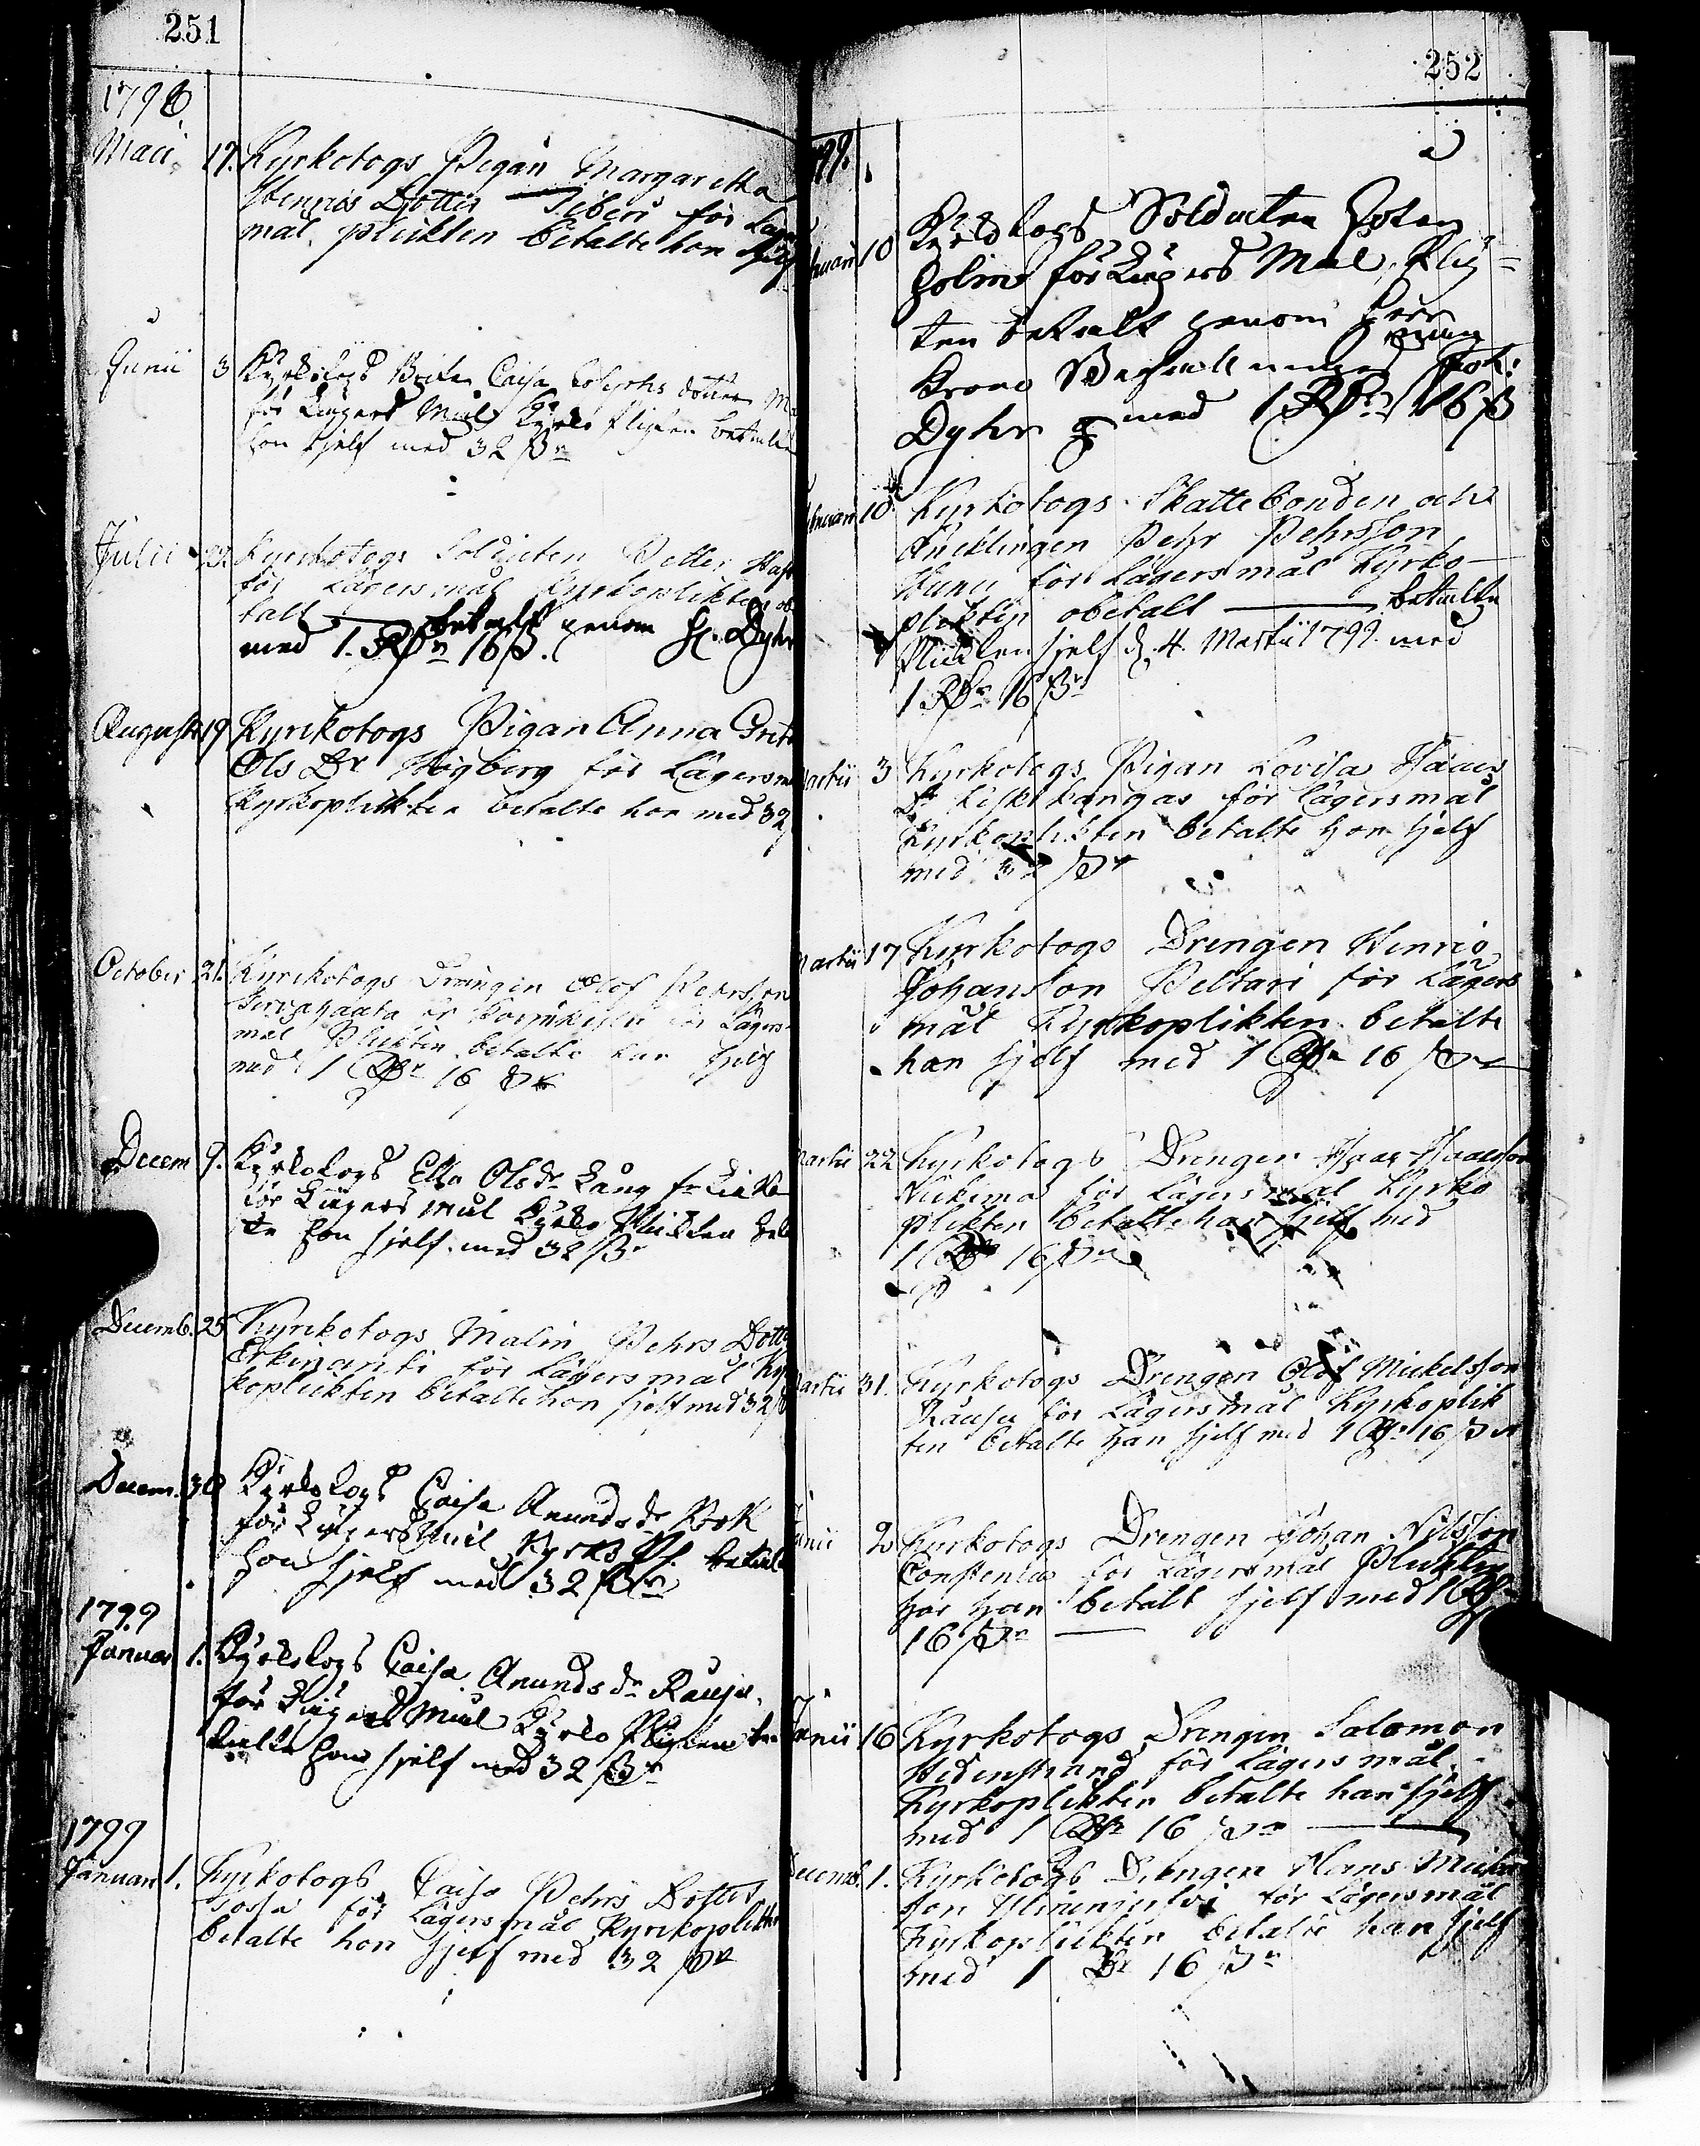 251
1798
Maii 17. Kyrkotogs Pigan Margaretha
Henrics Dotter Siberi för Lägers
mål, plickten betalte hon sjelf
Junii 3 Kyrkotogs Caisa dotter
för Lägers Mål Kyrko Pligten betalte
hon sjelf med 32 ßr
Julii 22. Kyrkotogs Soldaten Petter
för Lägersmål Kyrkoplikten obe
talt betalt genom H. Dyhr
med 1. Rdr 16 ß.
August 19 Kyrkotogs Pigan Anna Greta
Ols Dr Högberg för Lägersmål
Kyrkoplikten betalte hon med 32
October 21. Kyrkotogs Drängen Olof Pehrsson
för Lägers-
mål Plikten betalte han sjelf
med 1 Rdr 16 ßr
Decem 9. Kyrkotogs Ella Olsdr Lång
för Lägers mål Kyrko Plickten betal
te hon sjelf med 32 ßr
Decemb. 25 Kyrkotogs Malin Pehrs Dotter
Erkinantti för Lägersmål Kyr
koplickten betalte hon sjelf med 32 ß
Decem. 30 Kyrkotogs Caisa Anundsdr
för Lägers Mål Kyrko Pl. betalt
hon sjelf med 32 ßr
1799
Januar 1. Kyrkotogs Caisa Anundsdr Rauju
för Lägers Mål Kyrko Pligten be
talte hon sjelf med 32 ßr
1799
Januari 1. Kyrkotogs Caisa Pehrs Dotter
för Lägersmål Kyrkoplikten
betalte hon sjelf med 32 ßr
252
99.
10 Kyrkotogs Soldaten Johan
Holm för Lägers Mål, Plig=
ten betalt genom Herr
Krono Befallnings man Joh:
Dyhr med 1 Rdr 16 ß
10 Kyrkotogs Skattebonden och
Änklingen Pehr Pehrsson
för Lägersmål Kyrko-
plikten obetalt betalte
Plickten sjelf d. 4. Martii 1799. med
1 Rdr 16 ßr
Martii 3 Kyrkotogs Pigan Lovisa
Dr för Lägersmål
Kyrkoplikten betalte hon sjelf
med 32 ßr
Martii 17 Kyrkotogs Drengen Henric
Johansson Peltari för Lägers
mål Kyrkoplikten betalte
han sjelf med 1 Rdr 16 ßr
Martii 22 Kyrkotogs Drengen
för Lägersmål Kyrko
plikten betalte han sjelf med
1 Rdr 16 ßr
Martii 31. Kyrkotogs Drengen Olof Mickelsson
Rauju för Lägersmål Kyrkoplik
ten betalte han sjelf med 1 Rdr 16 ßr
Junii 2 Kyrkotogs Drengen Johan Nilsson
för Lägersmål Plickten
har han betalt sjelf med 1 Rdr
16 ßr
Junii 16 Kyrkotogs Drengen Salomon
Hedenstrand för Lägersmål
Kyrkoplikten betalte han sjelf
med 1 Rdr 16 ßr
Decemb. 1. Kyrkotogs Drengen Hans
son för Lägersmål
Kyrkoplickten betalte han sjelf
med 1 Rr 16 ßr